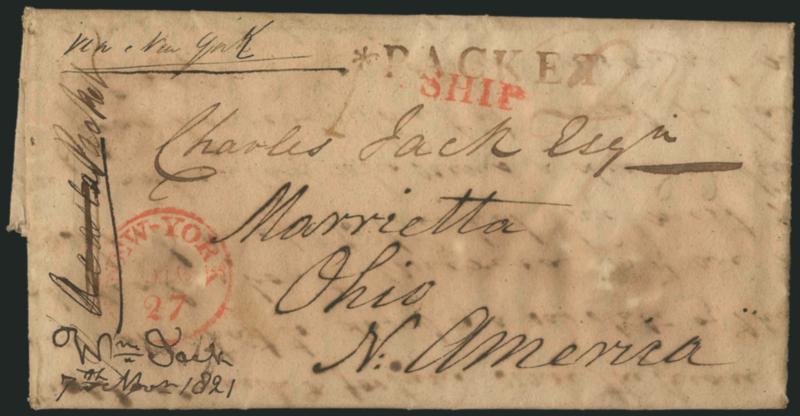 via New York
*PACKET
SHIP
Charles Jack Esqr
Marrietta
Ohio
N. America
Packet
NEW-YORK
27
Wm Jack
7th Nov 1821